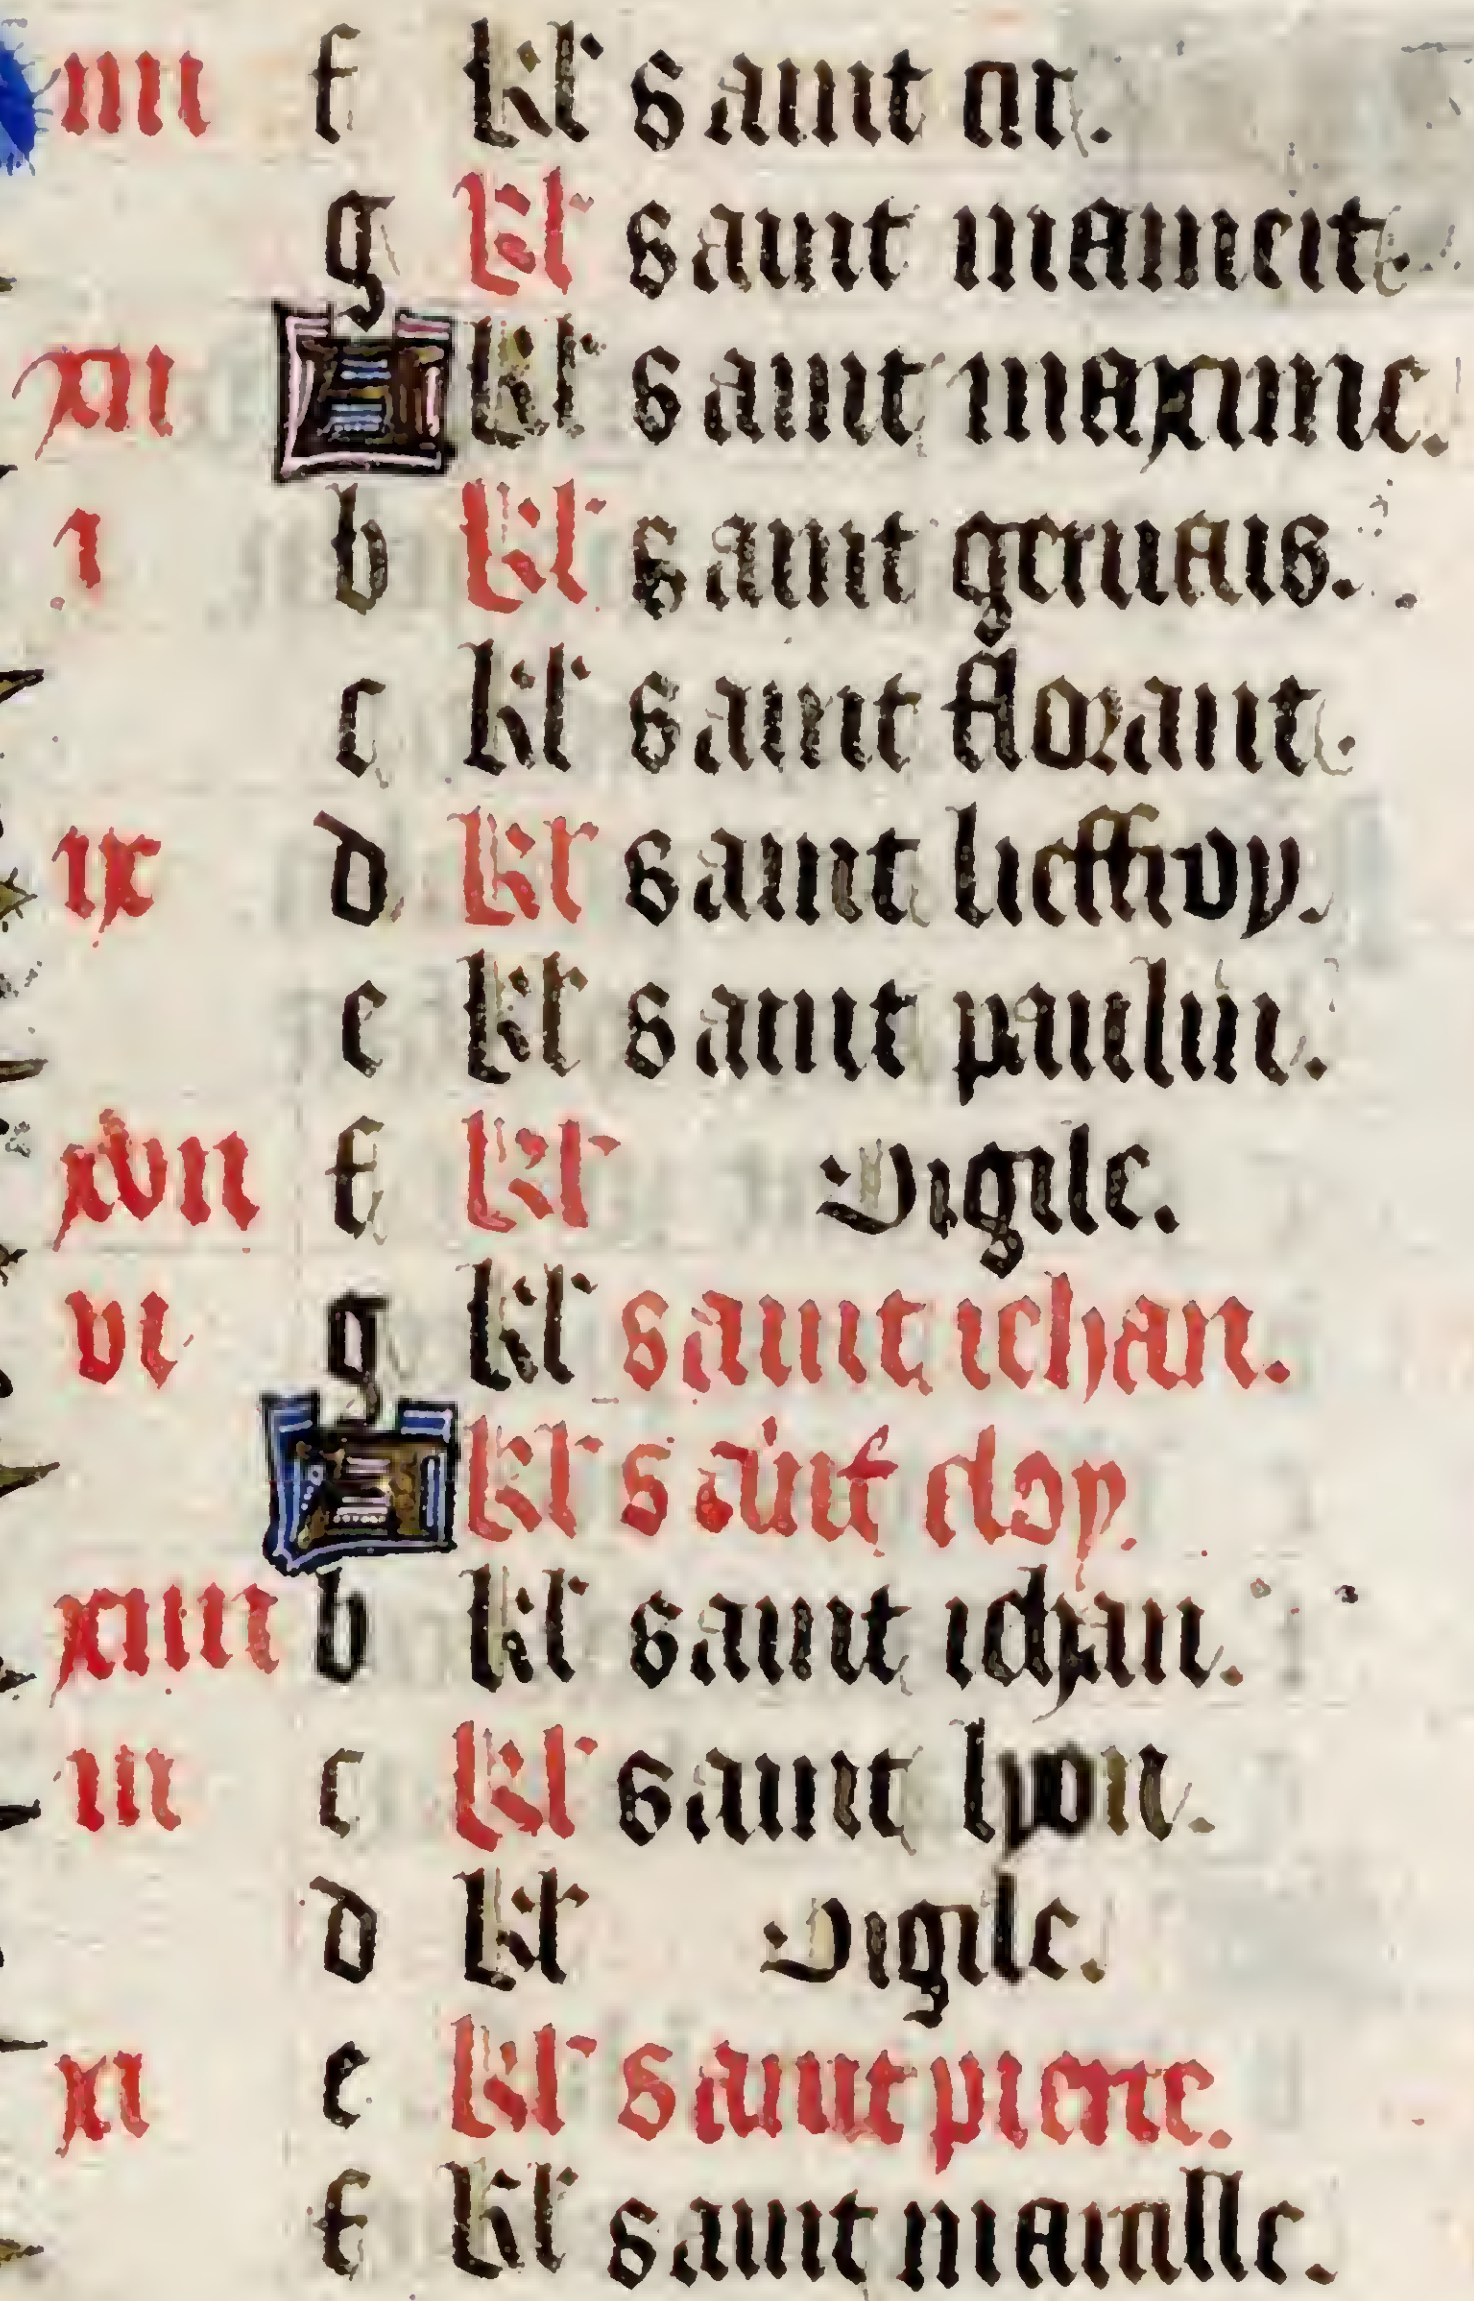 iiii f kl' saint cir.
g kl' saint mamert.
xii A kl' saint maxime.
i b kl' saint geruais.
c kl' saint florant.
ix d kl' saint lieffroy.
e kl' saint paulin.
xvii f kl' vigile.
vi g kl' saint iehan.
A kl' saint eloy.
xiiii b kl' saint iehan.
iii c kl' saint lyon.
d kl' vigile.
xi e kl' saint pierre.
f kl' saint marcille.